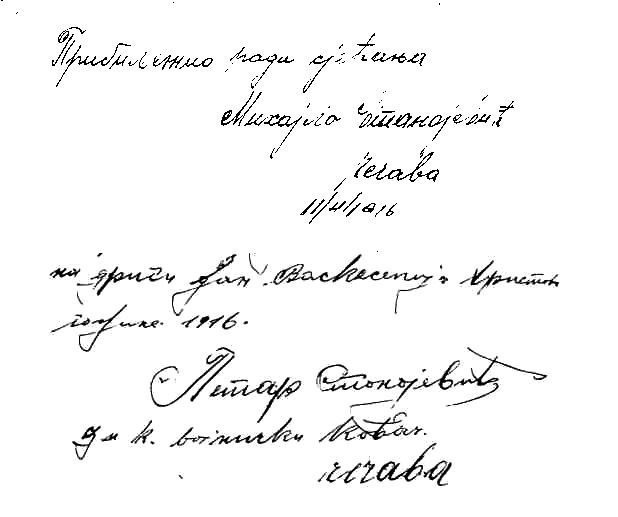 Прибиљежио ради сјећања
Михајло Станојевић
Чечава
11/IV/1916
на други дан Васкесенија Христов
године 1916.
Петар Станојевић
к. војнички Ковач.
Чечава